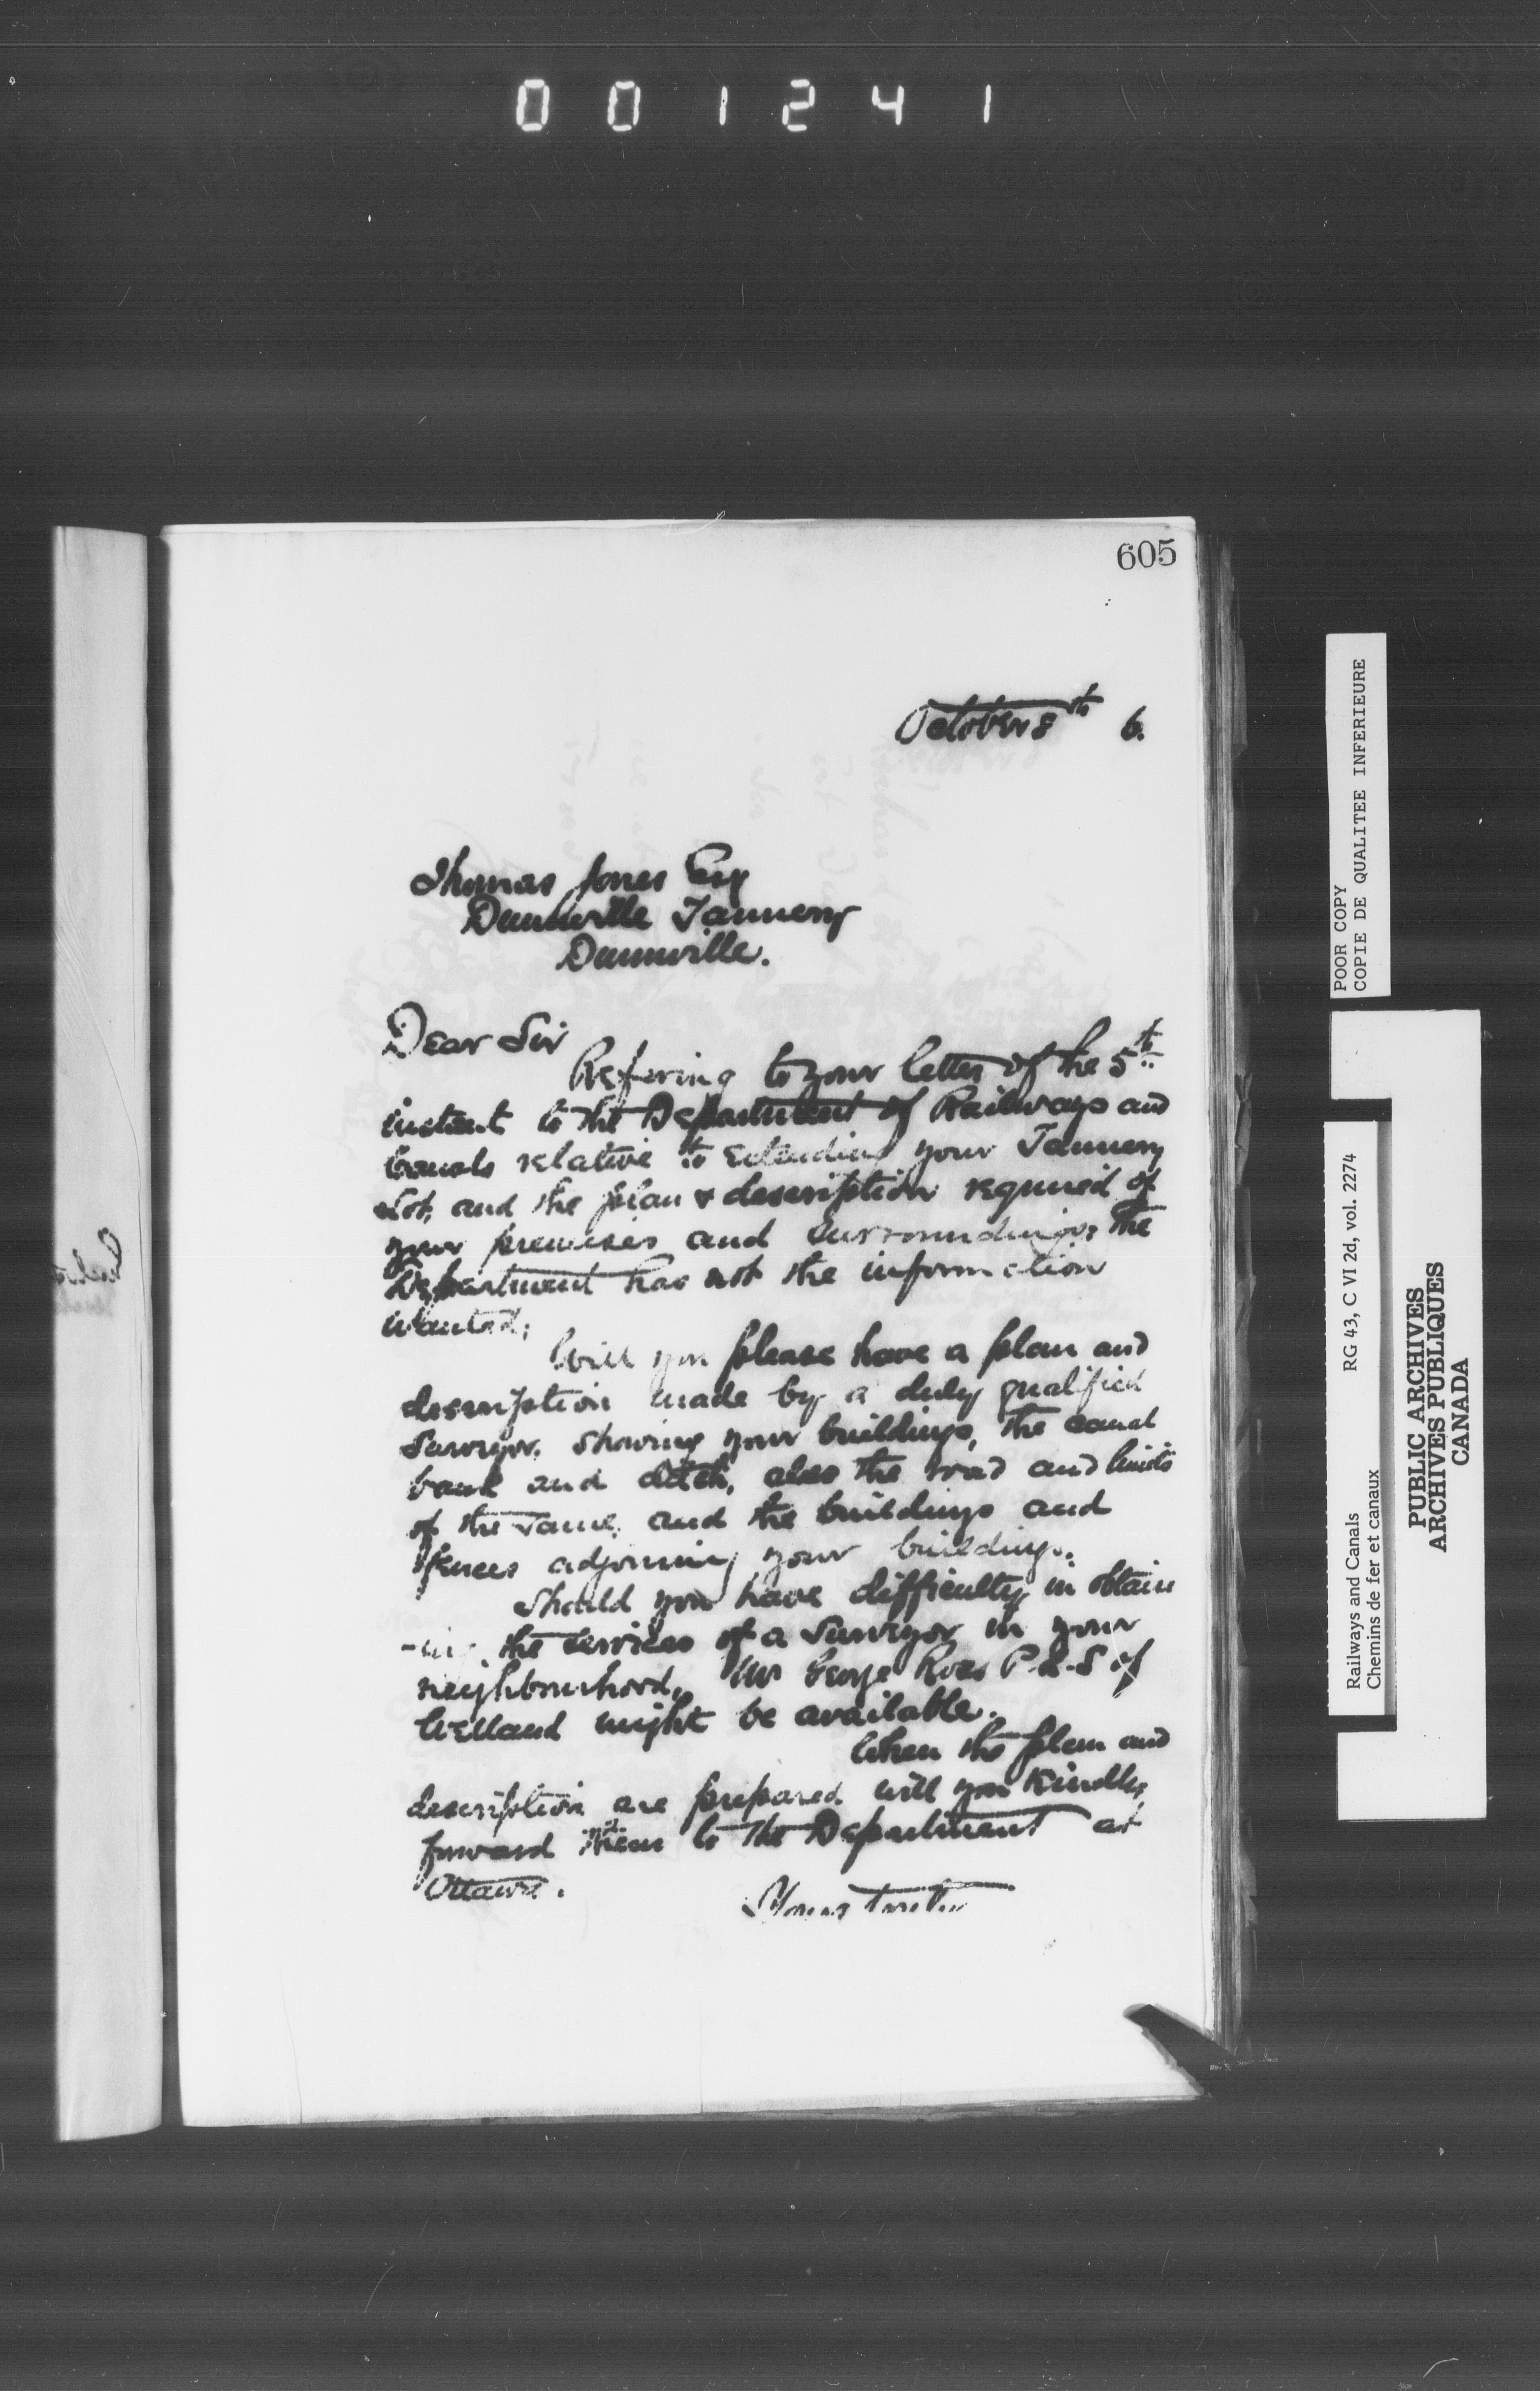 001241
605
October 8th 6.
Thomas Jones Esq
Dunnville Tannery
Dunnville.
Dear Sir
Refering to your letter of the 5th
instant to the Department of Railways and
Canals relative to extending your Tannery
Lot, and the plan & description required of
your premises and surroundings, the
Department has not the information
wanted;
Will you please have a plan and
description made by a duly qualified
Surveyor, showing your buildings, the canal
bank and ditch, also the road and limits
of the same, and the buildings and
fences adjoining your buildings.
Should you have difficulty in obtain
-ing the services of a Surveyor in your
neighbourhood, Mr George Ross P.L.S of
Welland might be available.
When the plan and
description are prepared will you kindly
forward them to the Department at
Ottawa.
Yours truly
POOR COPY
COPIE DE QUALITEE INFERIEURE
Railways and Canals RG 43, C VI 2d, vol. 2274
Chemins de fer et canaux
PUBLIC ARCHIVES
ARCHIVES PUBLIQUES
CANADA